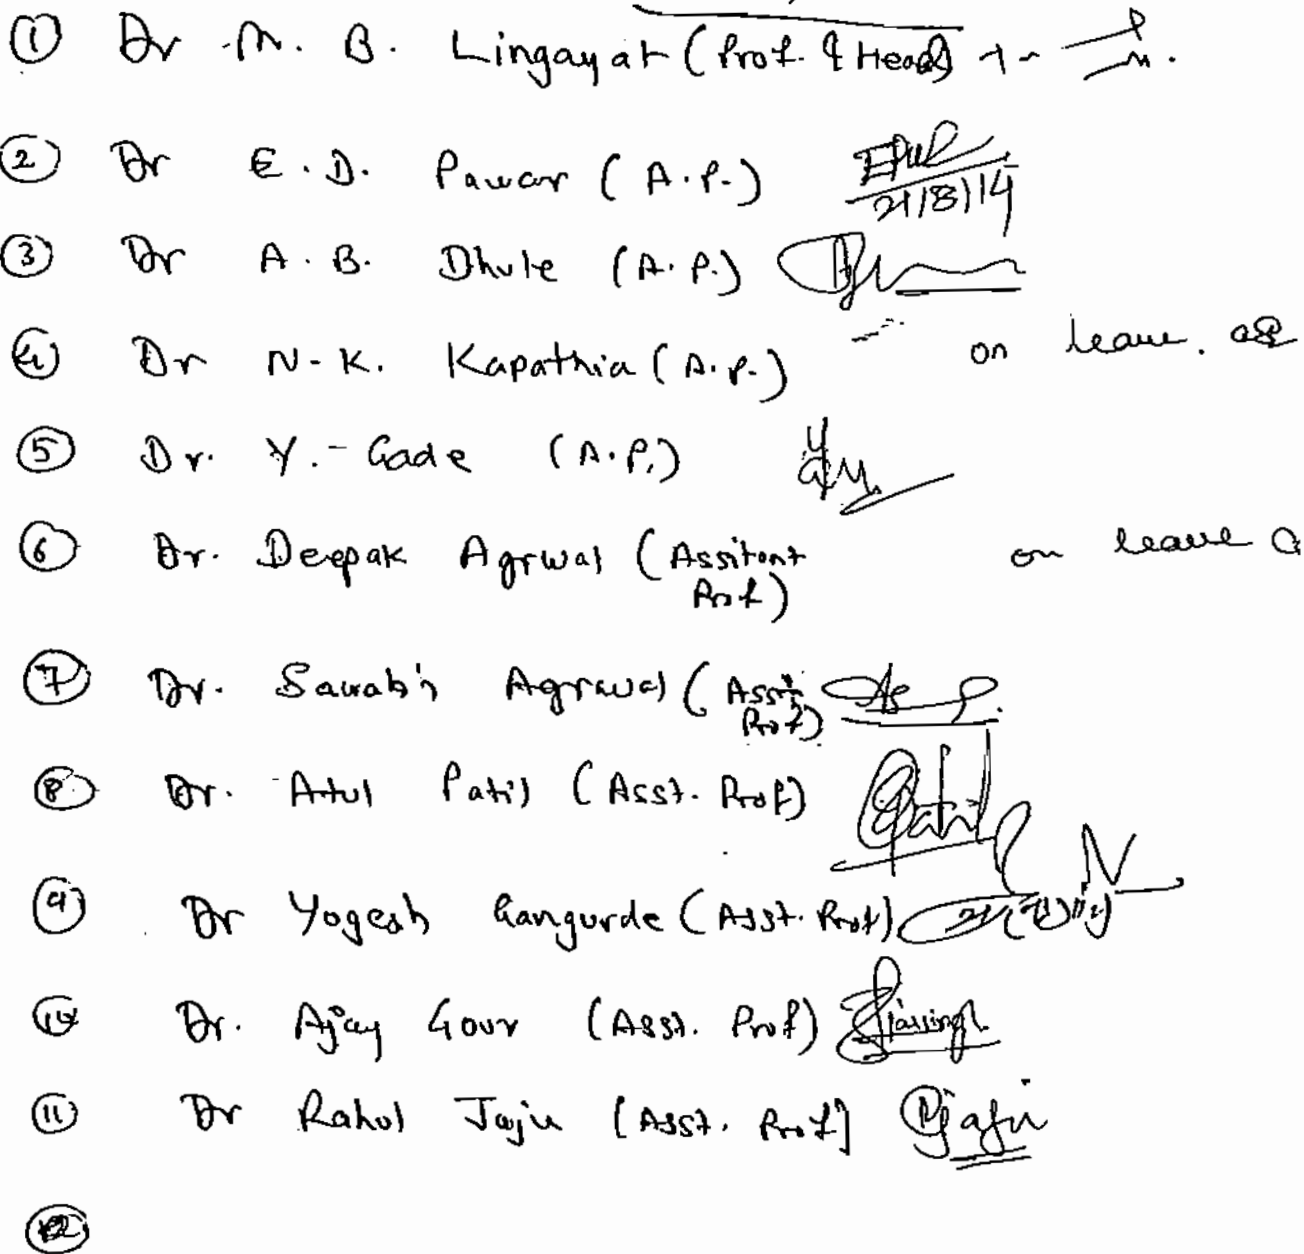 ① Dr. M. B. Lingayat (Prof. & Head)
② Dr E. D. Pawar (A.P.) 21/8/14
③ Dr A. B. Dhule (A.P.)
④ Dr N. K. Kapathia (A.P.) on leave.
⑤ Dr. Y. Gade (A.P.)
⑥ Dr. Deepak Agrwal (Assitant on leave
Prof)
⑦ Dr. Agrawal (Asst.
Prof)
⑧ Dr. Atul Patil (Asst. Prof) Patil
⑨ Dr Yogesh Gangurde (Asst. Prof)
⑩ Dr. Ajay Gour (Asst. Prof)
⑪ Dr Rahul Jaju (Asst. Prof) Jaju
⑫